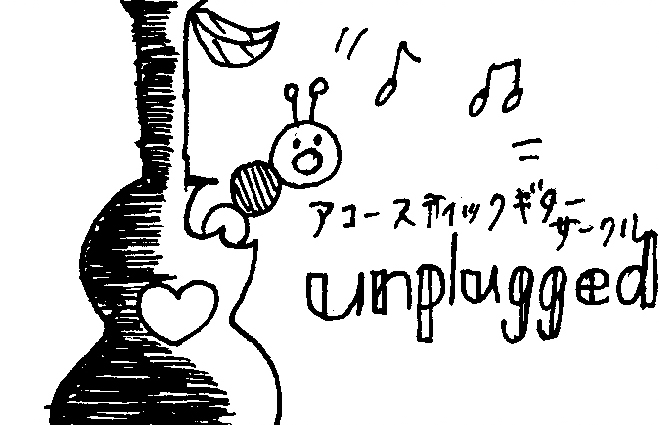 アコースティックギター
サークル
unplugged